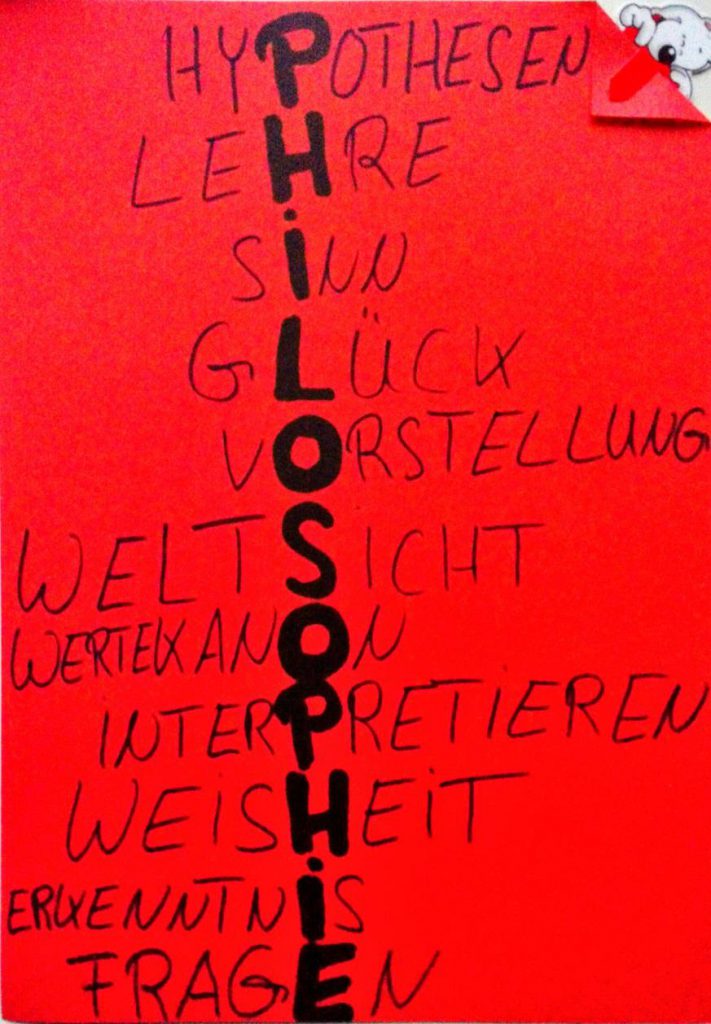 HYPOTHESEN
LEHRE
SiNN
GLÜCK
VORSTELLUNG
WELTSICHT
WERTEKANON
iNTERPRETIEREN
WEiSHEiT
ERKENNTNiS
FRAGEN